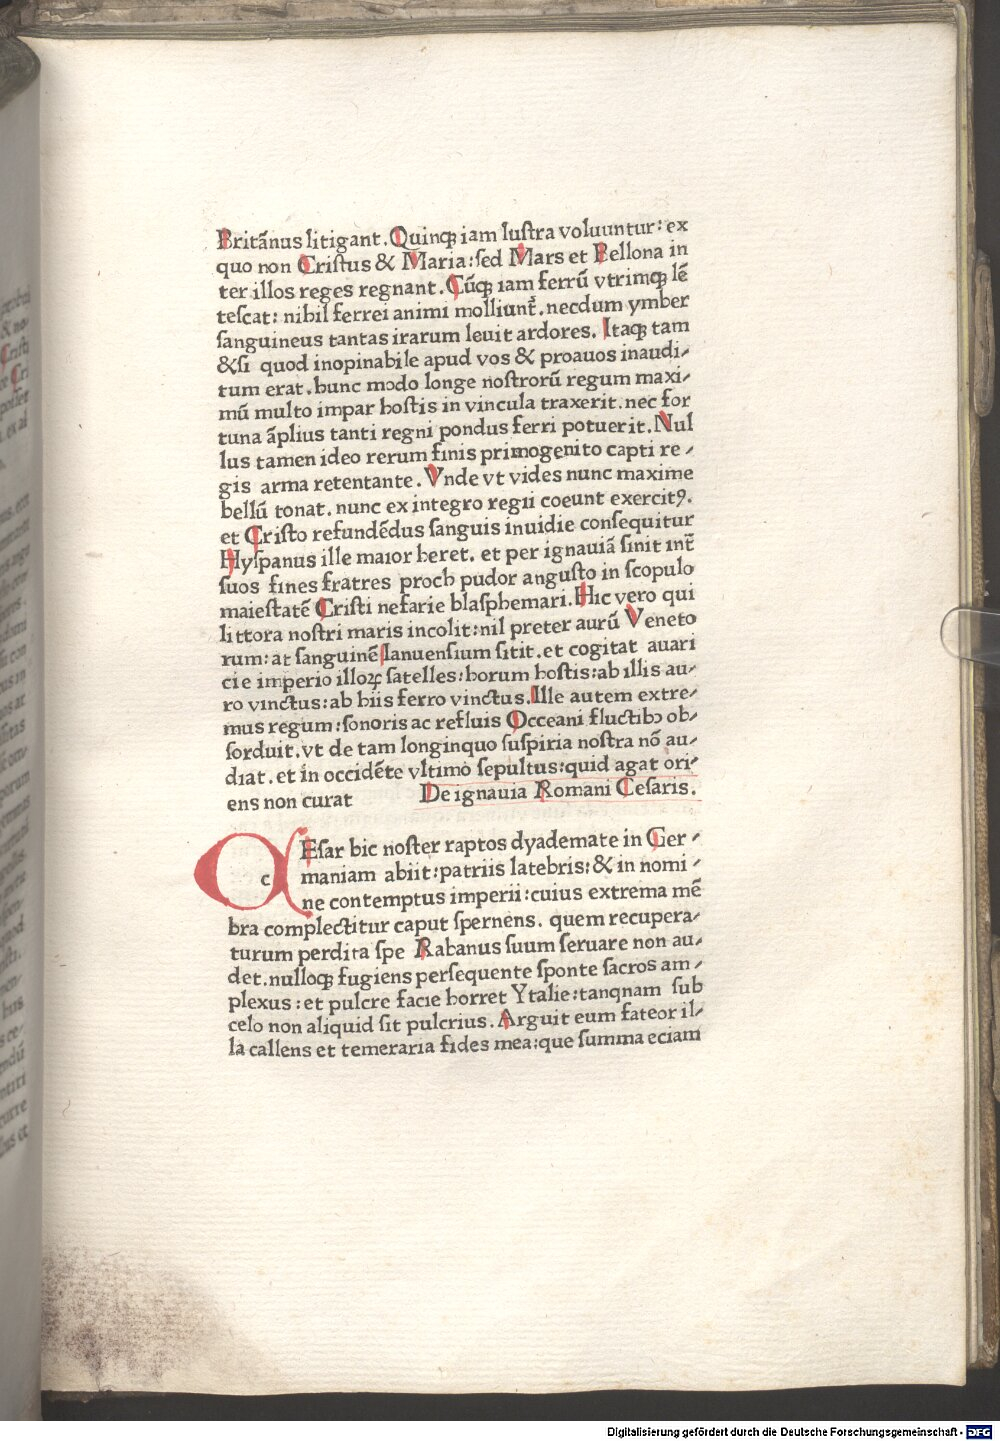 Britãnus litigant. Quinqꝫ iam lustra voluuntur: ex
quo non Cristus & Maria: sed Mars et Bellona in
ter illos reges regnant. Cũqꝫ iam ferrũ vtrimqꝫ lẽ
tescat: nihil ferrei animi molliunt᷑. necdum ymber
sanguineus tantas irarum leuit ardores. Itaqꝫ tam
&si quod inopinabile apud vos & proauos inaudi⸗
tum erat. hunc modo longe nostrorũ regum maxi⸗
mũ multo impar hostis in vincula traxerit. nec for
tuna ãplius tanti regni pondus ferri potuerit. Nul
lus tamen ideo rerum finis primogenito capti re⸗
gis arma retentante. Vnde vt vides nunc maxime
bellũ tonat. nunc ex integro regii coeunt exercitꝰ.
et Cristo refundẽdus sanguis inuidie consequitur
Hyspanus ille maior heret. et per ignauiã sinit int᷑
suos fines fratres proch pudor angusto in scopulo
maiestatẽ Cristi nefarie blasphemari. Hic vero qui
littora nostri maris incolit: nil preter aurũ Veneto
rum: at sanguinẽ Ianuensium sitit. et cogitat auari
cie imperio illoꝝ satelles: horum hostis: ab illis au⸗
ro vinctus: ab hiis ferro vinctus. Ille autem extre⸗
mus regum: sonoris ac refluis Occeani fluctibꝫ ob⸗
sorduit. vt de tam longinquo suspiria nostra nõ au⸗
diat. et in occidẽte vltimo sepultus: quid agat ori⸗
ens non curat De ignauia Romani Cesaris.
c Esar hic noster raptos dyademate in Ger⸗
maniam abiit: patriis latebris: & in nomi⸗
ne contemptus imperii: cuius extrema mẽ
bra complectitur caput spernens. quem recupera⸗
turum perdita spe Rabanus suum seruare non au⸗
det. nulloqꝫ fugiens persequente sponte sacros am⸗
plexus: et pulcre facie horret Ytalie: tanqnam sub
celo non aliquid sit pulcrius. Arguit eum fateor il⸗
la callens et temeraria fides mea: que summa eciam
Digitalisierung gefördert durch die Deutsche Forschungsgemeinschaft - DFG